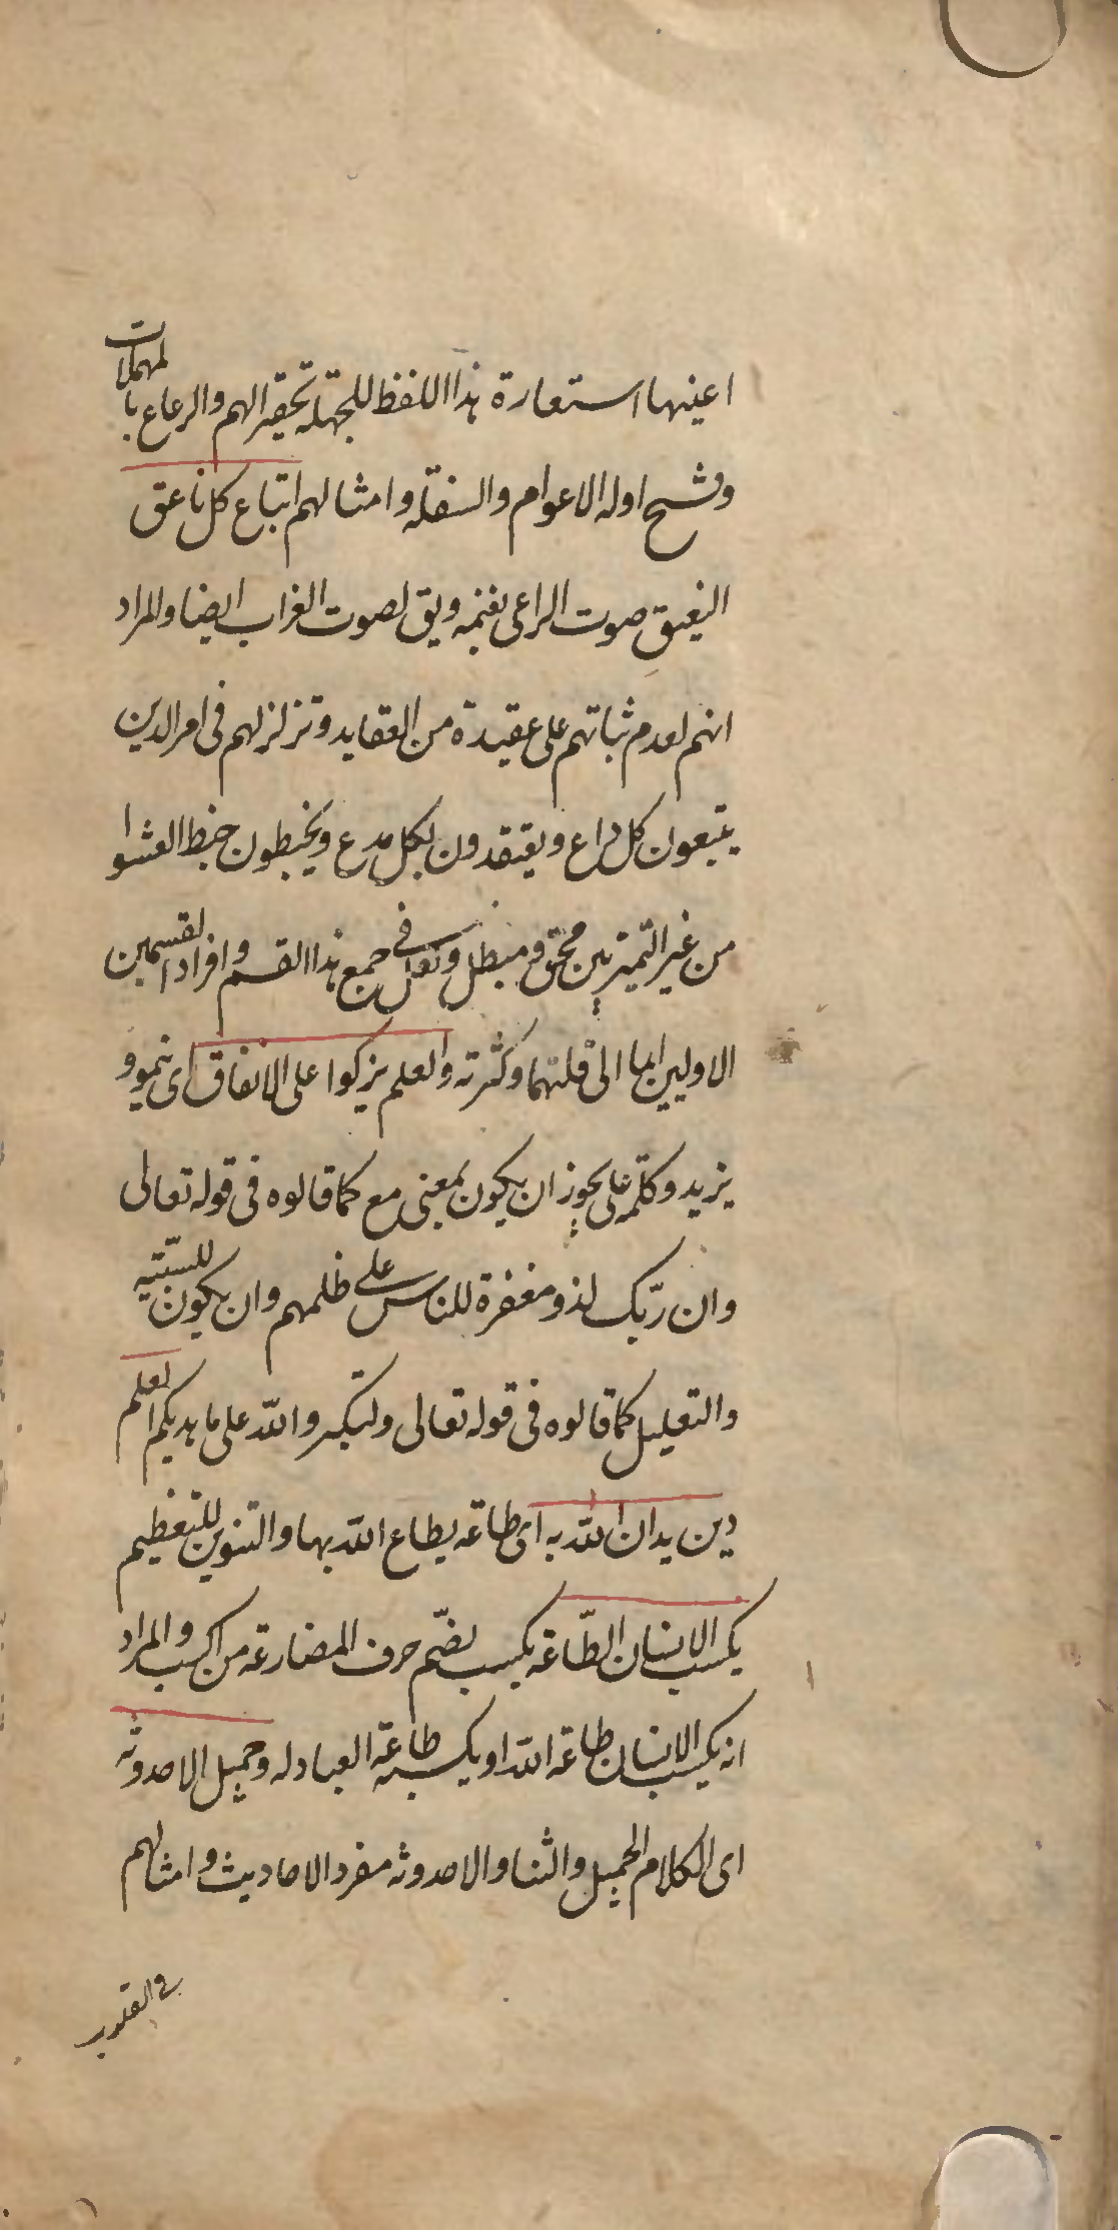 اعينها استعارة هذا اللفظ للجهلة تحقيرا لهم والرعاع بالمهملات
وفتح اوله العوام والسفلة وامثالهم اتباع كل ناعق
النعيق صوت الراعى بغنمه ويق لصوت الغراب ايضا والمراد
انهم لعدم ثباتهم على عقيدة من العقايد وتزلزلهم فى امر الدين
يتبعون كل داع ويعتقدون بكل مدع ويخبطون خبط العشوا
من غير التميز بين محق ومبطل ولعل فى جمع هذا القسم وافراد القسمين
الاولين ايما الى قلتهما وكثرته والعلم يزكوا على الانفاق اى ينمو و
يزيد وكلمة على يجوز ان يكون بمعنى مع كما قالوه فى قوله تعالى
وان ربّك لذو مغفرة للناس على ظلمهم وان يكون للسّببية
والتعليل كما قالوه فى قوله تعالى ولتكبروا الله على ما هديكم العلم
دين يدان الله به اى طاعة يطاع الله بها والتنوين للتعظيم
يكسب الانسان الطّاعة يكسب بضمّ حرف المضارعة من اكسب والمراد
انه يكسب الانسان طاعة الله او يكسبه طاعة العباد له وجميل الاحدوثة
اى الكلام الجميل والثنا والاحدوثه مفرد الاحاديث وامثالهم
فى القلوب